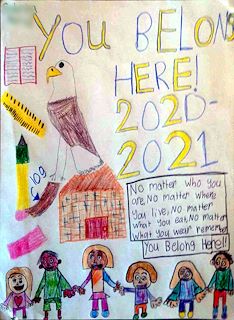 YOU BELONG
HERE!
2020-
2021
No matter who you
are, No matter where
You live, No matter
what You eat, No matter
what You wear remember
You Belong Here!!